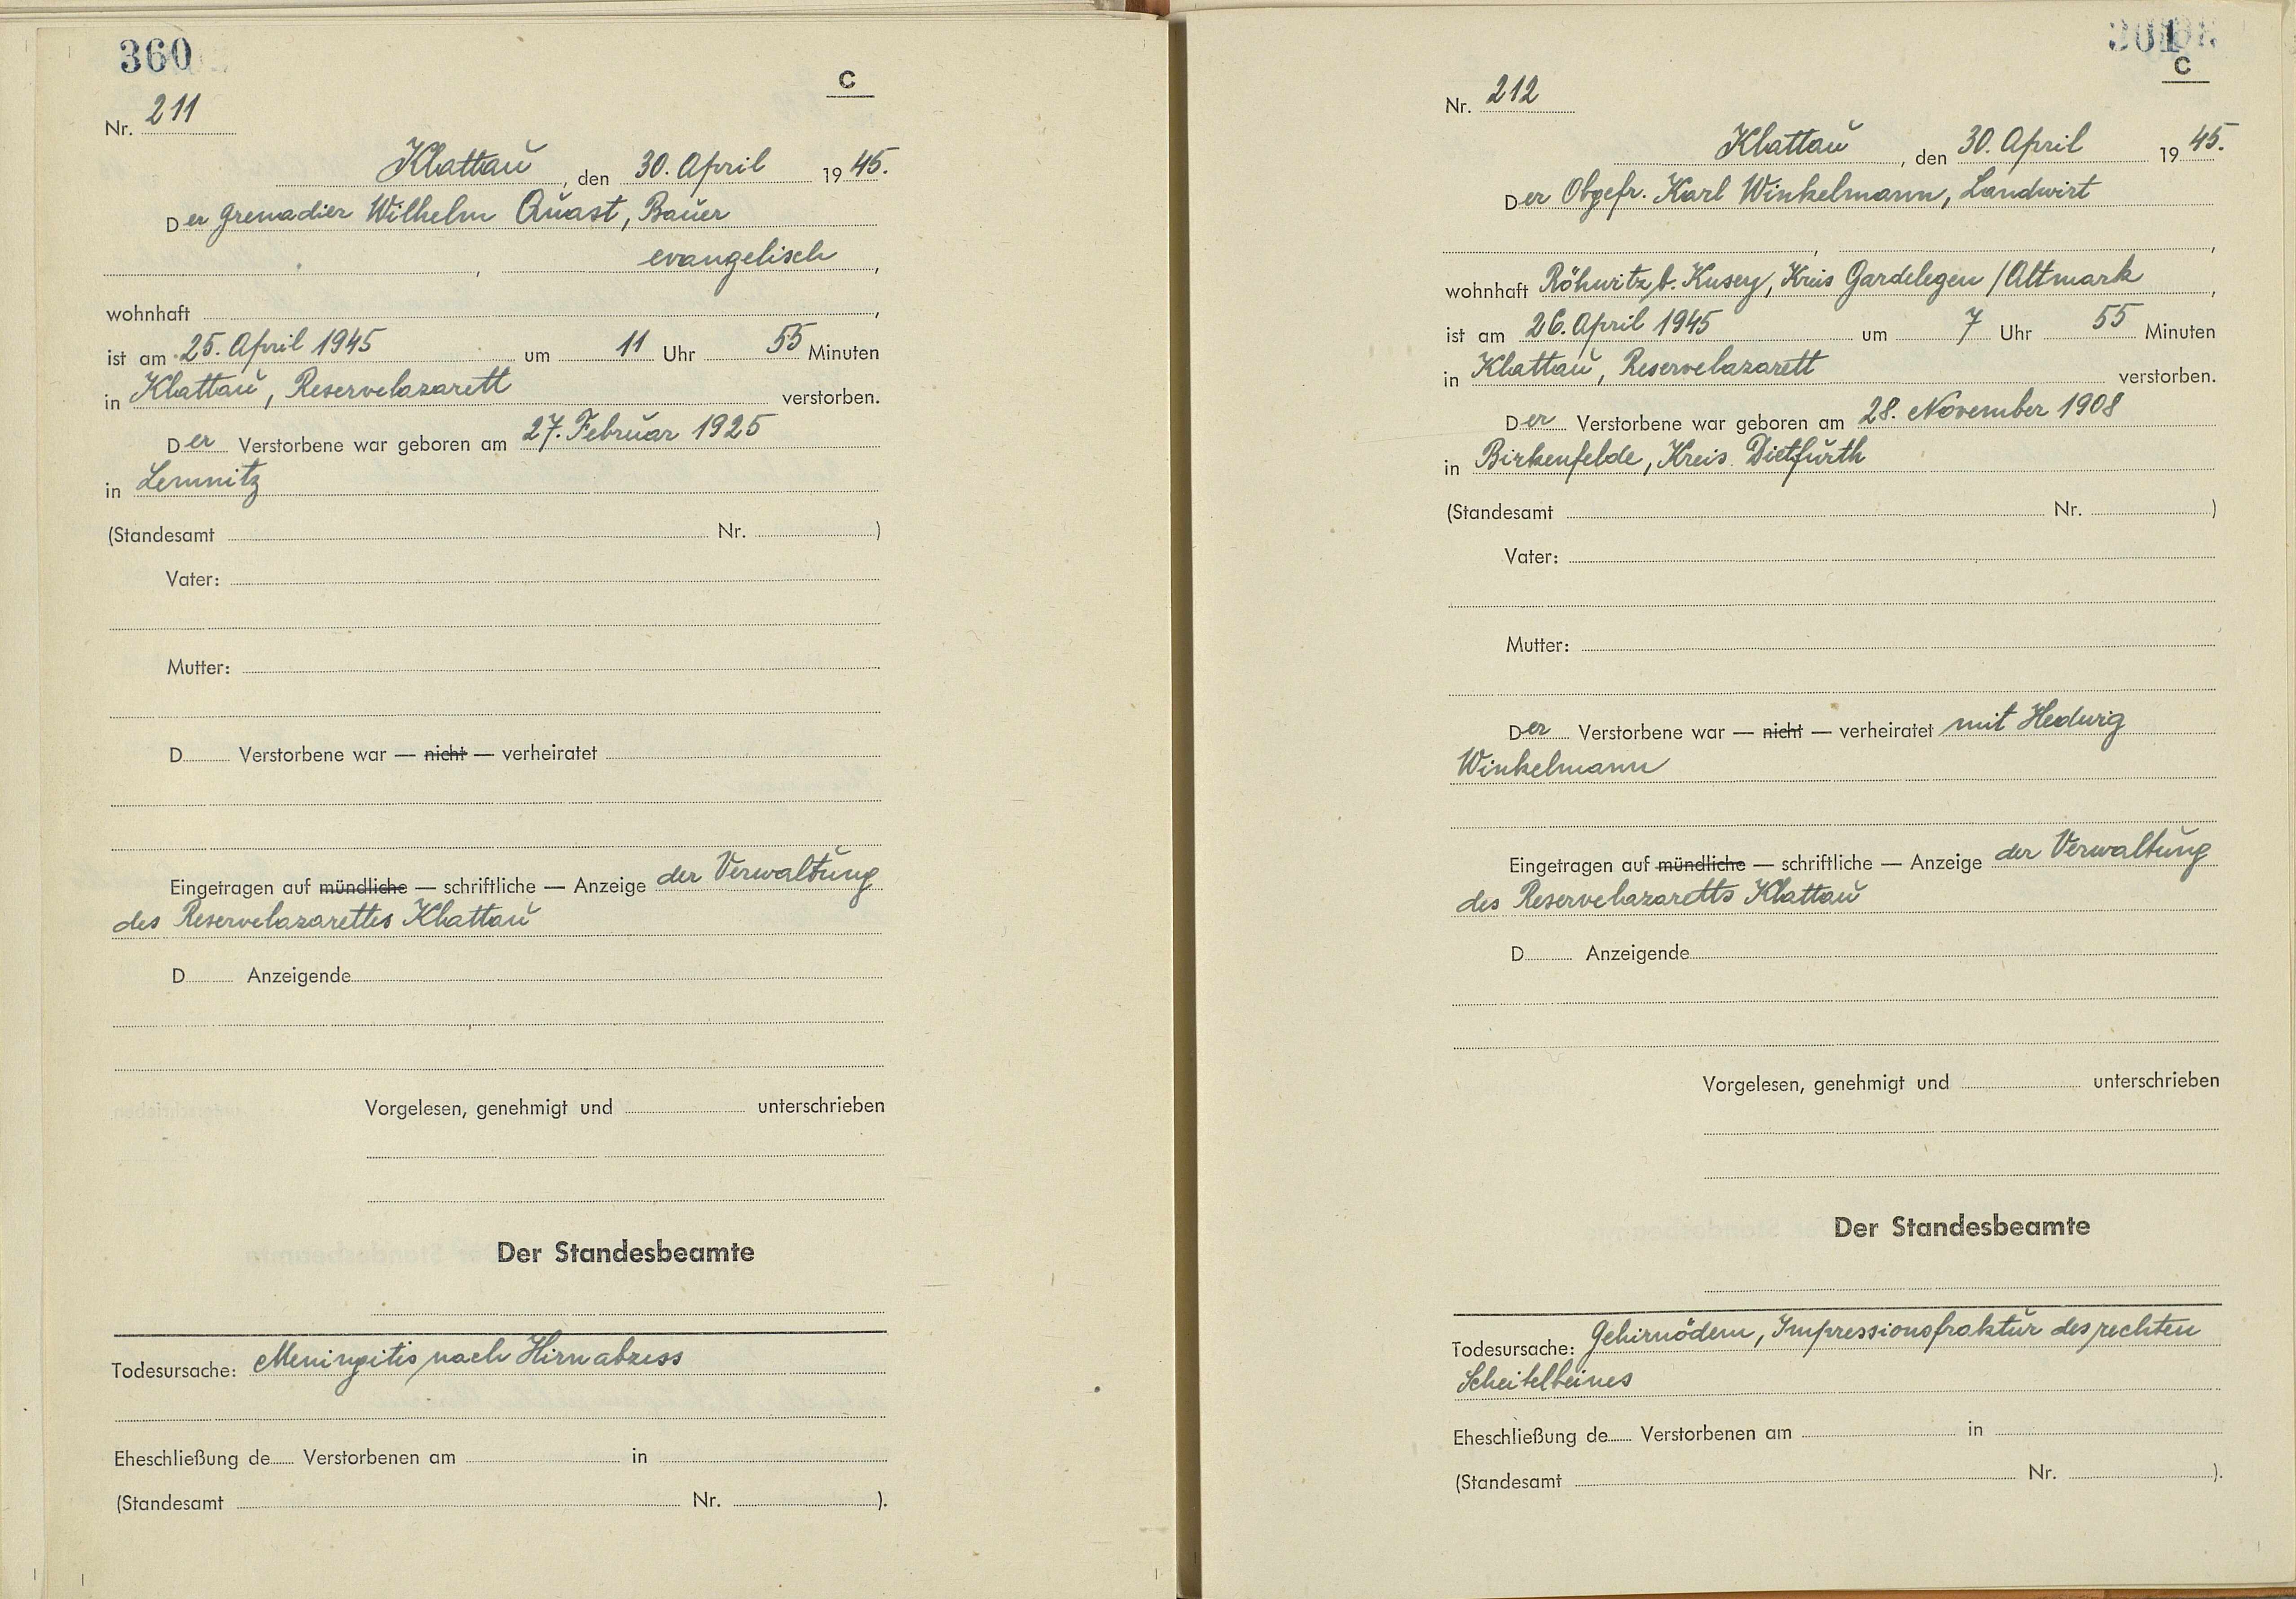 360
C
Nr. 211
Klattau, den 30. April 1945.
Der Grenadier Wilhelm Quast, Bauer
, evangelisch,
wohnhaft ,
ist am 25. April 1945 um 11 Uhr 55 Minuten
in Klattau, Reservelazarett verstorben.
Der Verstorbene war geboren am 27. Februar 1925
in Lemnitz
(Standesamt Nr. )
Vater:
Mutter:
D Verstorbene war — nicht — verheiratet
Eingetragen auf mündliche — schriftliche — Anzeige der Verwaltung
des Reservelazarettes Klattau
D Anzeigende
Vorgelesen, genehmigt und unterschrieben
Der Standesbeamte
Todesursache: Meningitis nach Hirnabzess
Eheschließung de Verstorbenen am in
(Standesamt Nr. ).
361
C
Nr. 212
Klattau, den 30. April 1945.
Der Obgefr. Karl Winkelmann, Landwirt
, ,
wohnhaft Röhwitz b. Kusey, Kreis Gardelegen / Altmark,
ist am 26. April 1945 um 7 Uhr 55 Minuten
in Klattau, Reservelazarett verstorben.
Der Verstorbene war geboren am 28. November 1908
in Birkenfelde, Kreis Dietfurth
(Standesamt Nr. )
Vater:
Mutter:
Der Verstorbene war — nicht — verheiratet mit Hedwig
Winkelmann
Eingetragen auf mündliche — schriftliche — Anzeige der Verwaltung
des Reservelazaretts Klattau
D Anzeigende
Vorgelesen, genehmigt und unterschrieben
Der Standesbeamte
Todesursache: Gehirnödem, Impressionsfraktur des rechten
Scheitelbeines
Eheschließung de Verstorbenen am in
(Standesamt Nr. ).